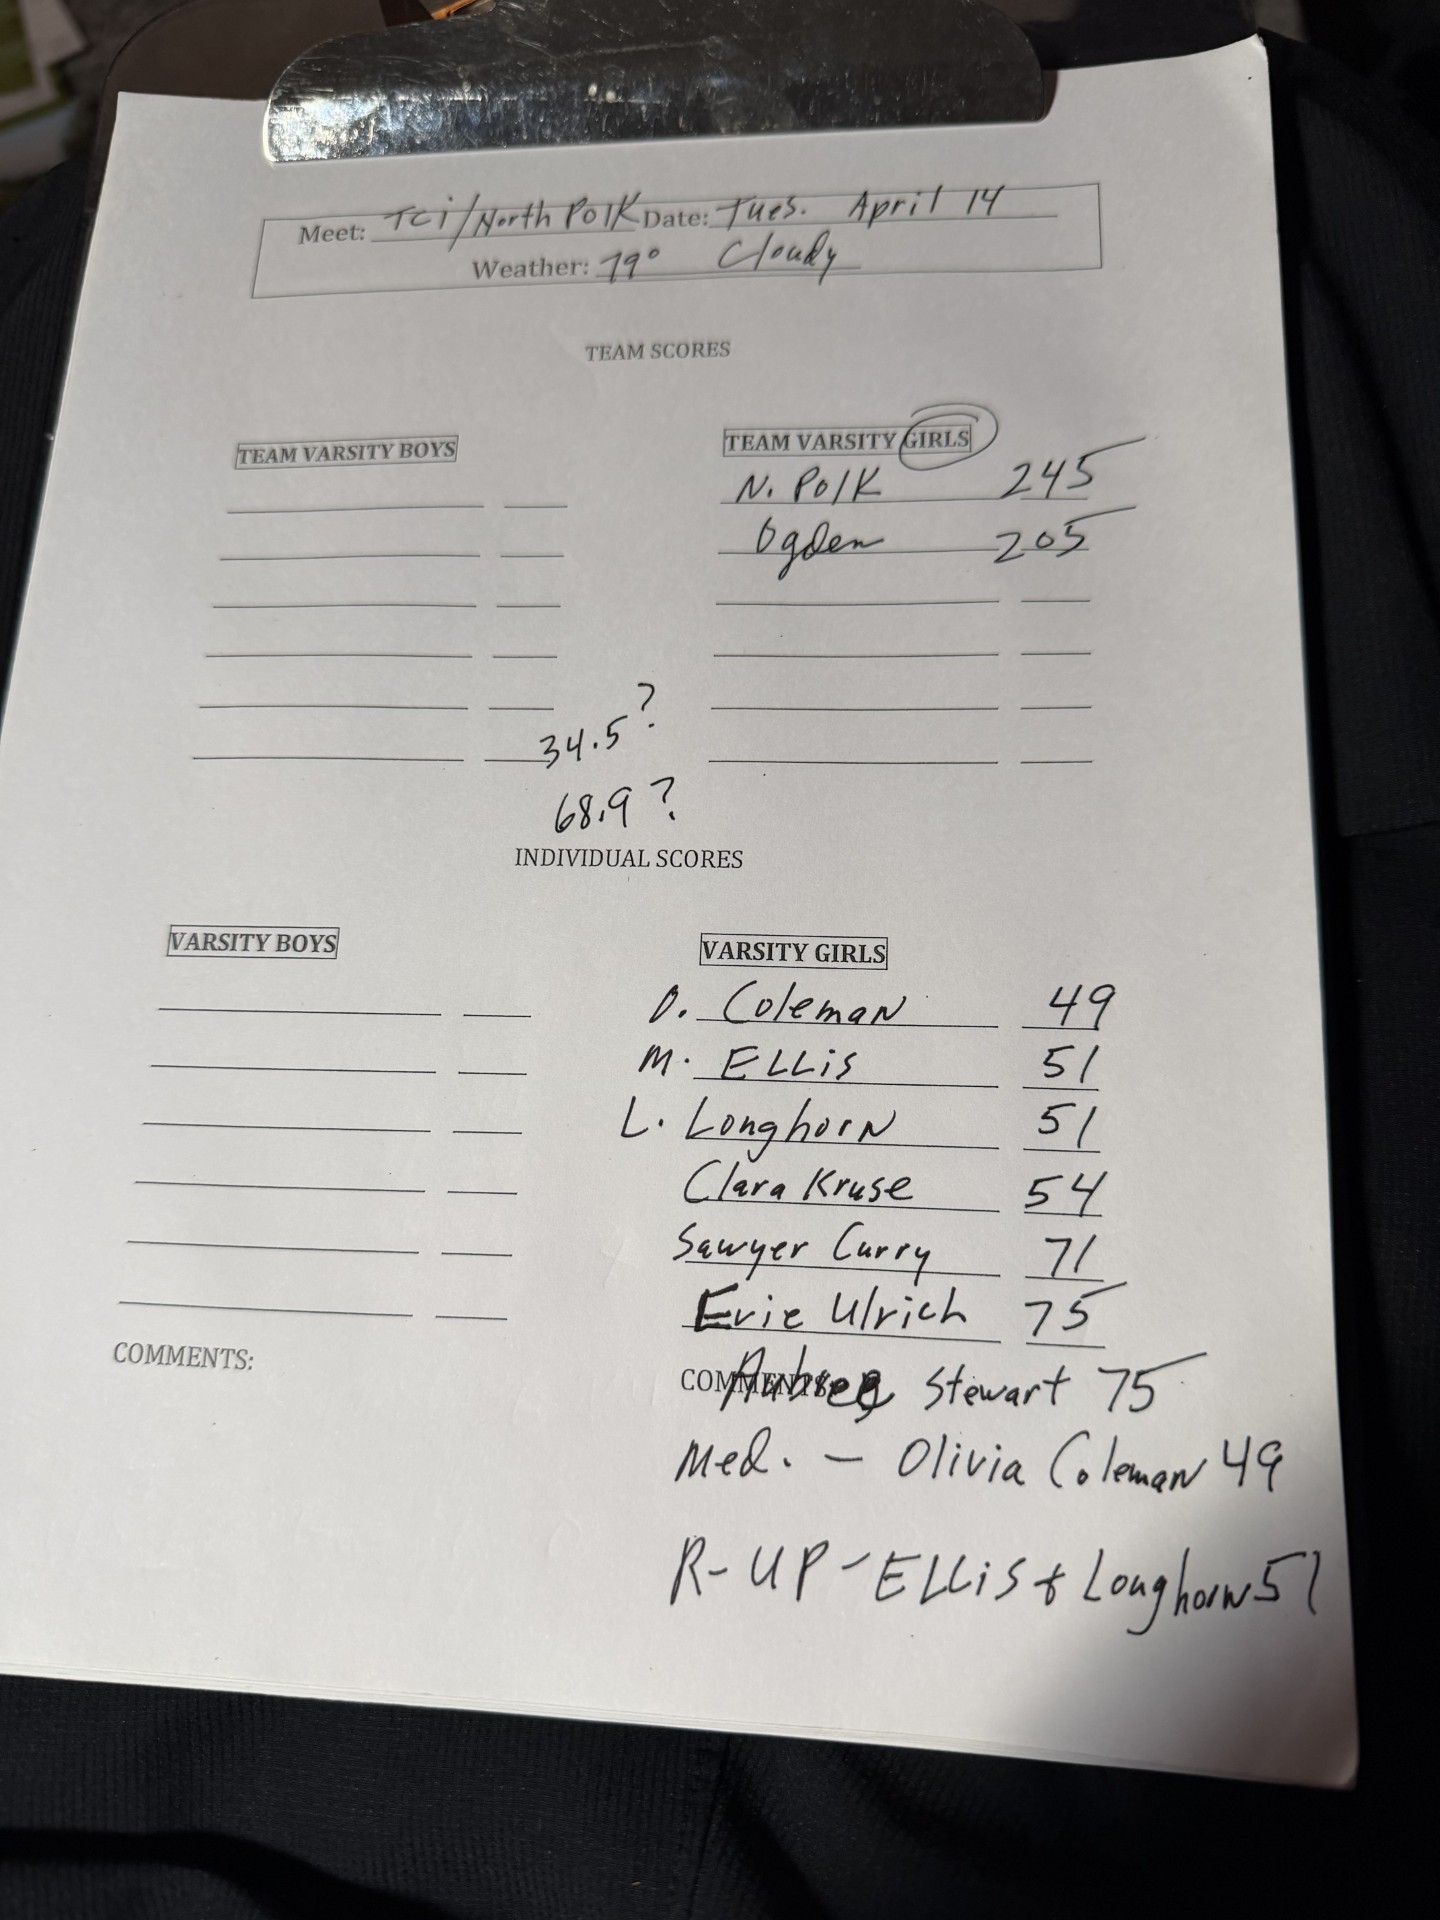 Meet: TCi/North Polk Date: Tues. April 14
Weather: 79° Cloudy
TEAM SCORES
TEAM VARSITY BOYS
TEAM VARSITY GIRLS
N. Polk 245
Ogden 205
34.5?
68.9?
INDIVIDUAL SCORES
VARSITY BOYS
VARSITY GIRLS
O. Coleman 49
M. ELLiS 51
L. Longhorn 51
Clara Kruse 54
Sawyer Curry 71
Evie Ulrich 75
COMMENTS:
COMMENTS
Aubree Stewart 75
Med. - Olivia Coleman 49
R-UP-ELLiS & Longhorn 51